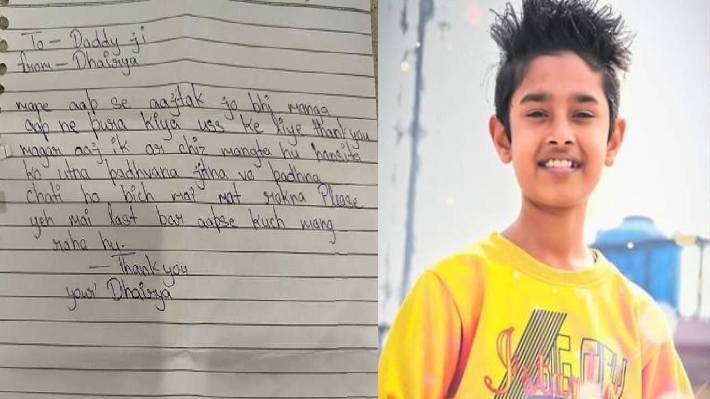 To - Daddy ji
from - Dhairya
mane aap se aajtak jo bhi manga
aap ne pura kiya uss ke liye thankyou
magar aaj ik or chiz mangta hu hansita
ko utna padhvana jitna vo padhna
chati ho bich mai mat rokna Please
yeh mai last bar aapse kuch mang
raha hu.
- Thank you
your' Dhairya